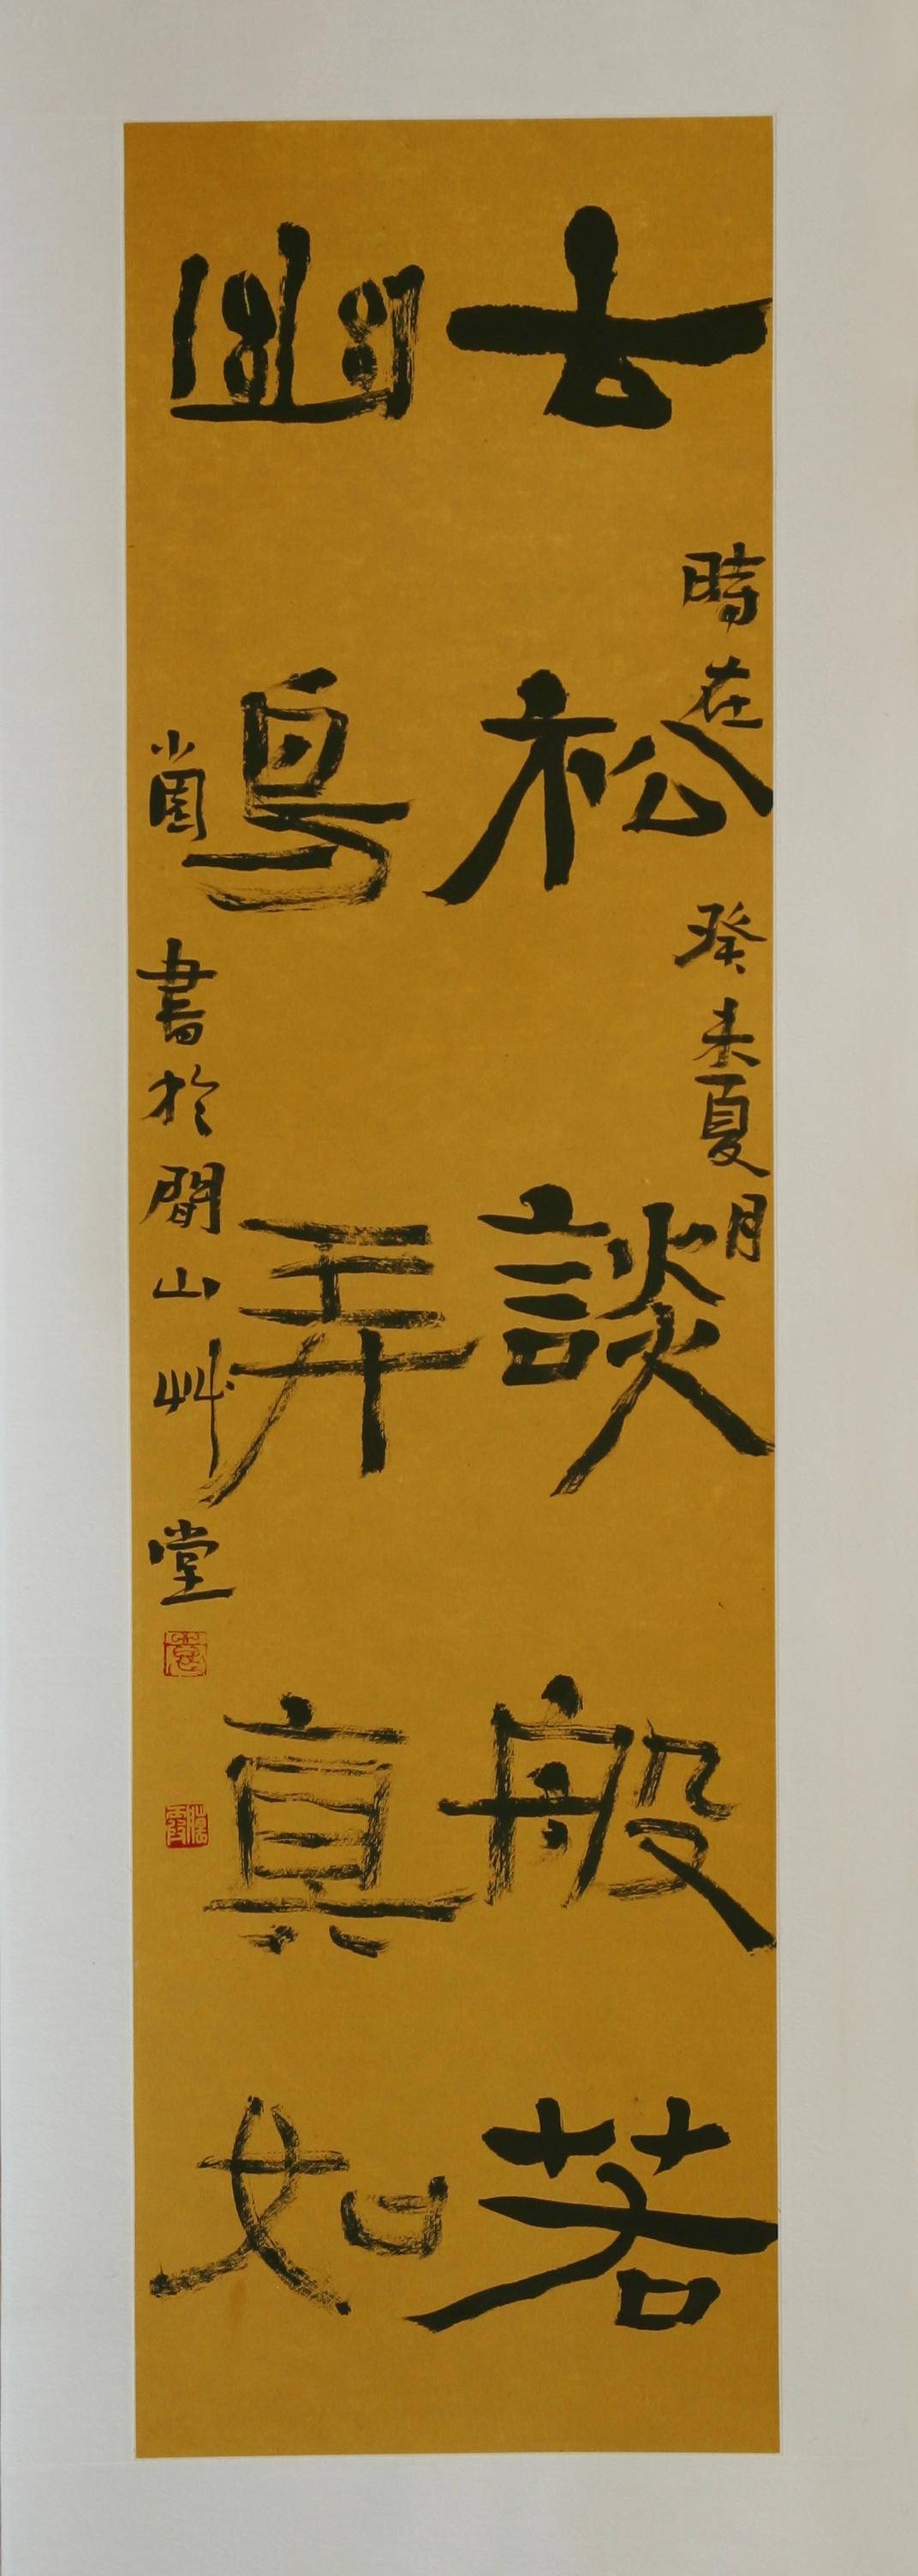 古松談般若
時在癸未夏月
幽鳥弄真如
小園書於閒山艸堂